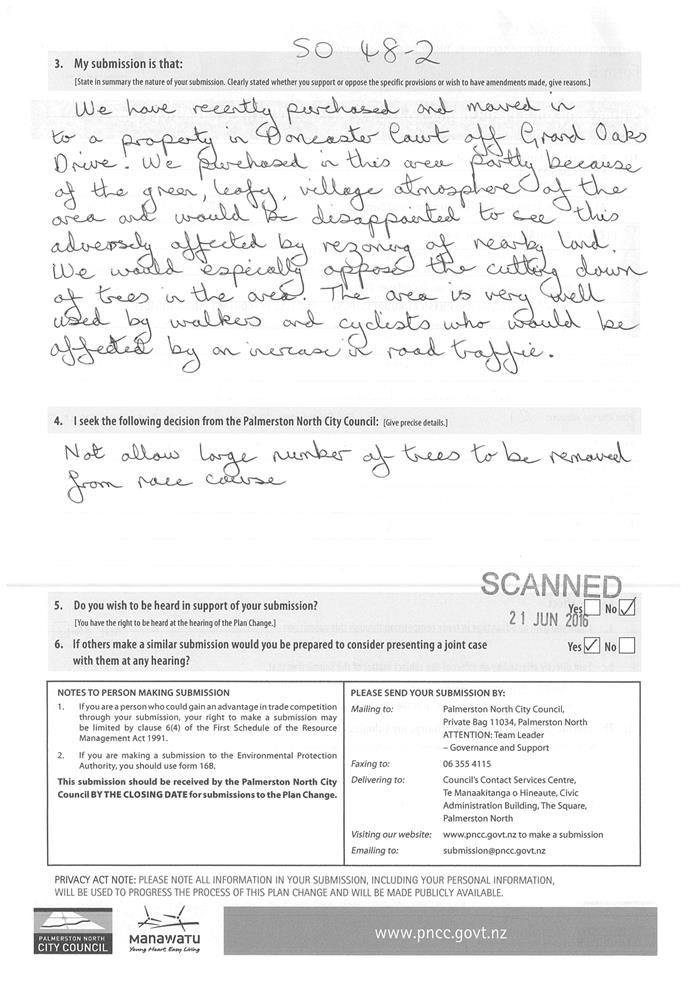 SO 48-2
3. My submission is that:
[State in summary the nature of your submission. Clearly stated whether you support or oppose the specific provisions or wish to have amendments made, give reasons.]
We have recently purchased and moved in
to a property in Doncaster Court off Grand Oaks
Drive. We purchased in this area partly because
of the green, leafy, village atmosphere of the
area and would be disappointed to see this
adversely affected by rezoning of nearby land.
We would especially oppose the cutting down
of trees in the area. The area is very well
used by walkers and cyclists who would be
affected by an increase in road traffic.
4. I seek the following decision from the Palmerston North City Council: [Give precise details.]
Not allow large number of trees to be removed
from race course
SCANNED
21 JUN 2016
5. Do you wish to be heard in support of your submission? Yes No
[You have the right to be heard at the hearing of the Plan Change.]
6. If others make a similar submission would you be prepared to consider presenting a joint case Yes No
with them at any hearing?
NOTES TO PERSON MAKING SUBMISSION
1. If you are a person who could gain an advantage in trade competition
through your submission, your right to make a submission may
be limited by clause 6(4) of the First Schedule of the Resource
Management Act 1991.
2. If you are making a submission to the Environmental Protection
Authority, you should use form 16B.
This submission should be received by the Palmerston North City
Council BY THE CLOSING DATE for submissions to the Plan Change.
PLEASE SEND YOUR SUBMISSION BY:
Mailing to: Palmerston North City Council,
Private Bag 11034, Palmerston North
ATTENTION: Team Leader
– Governance and Support
Faxing to: 06 355 4115
Delivering to: Council's Contact Services Centre,
Te Manaakitanga o Hineaute, Civic
Administration Building, The Square,
Palmerston North
Visiting our website: www.pncc.govt.nz to make a submission
Emailing to: submission@pncc.govt.nz
PRIVACY ACT NOTE: PLEASE NOTE ALL INFORMATION IN YOUR SUBMISSION, INCLUDING YOUR PERSONAL INFORMATION,
WILL BE USED TO PROGRESS THE PROCESS OF THIS PLAN CHANGE AND WILL BE MADE PUBLICLY AVAILABLE.
PALMERSTON NORTH
CITY COUNCIL
MANAWATU
Young Heart, Easy Living
www.pncc.govt.nz